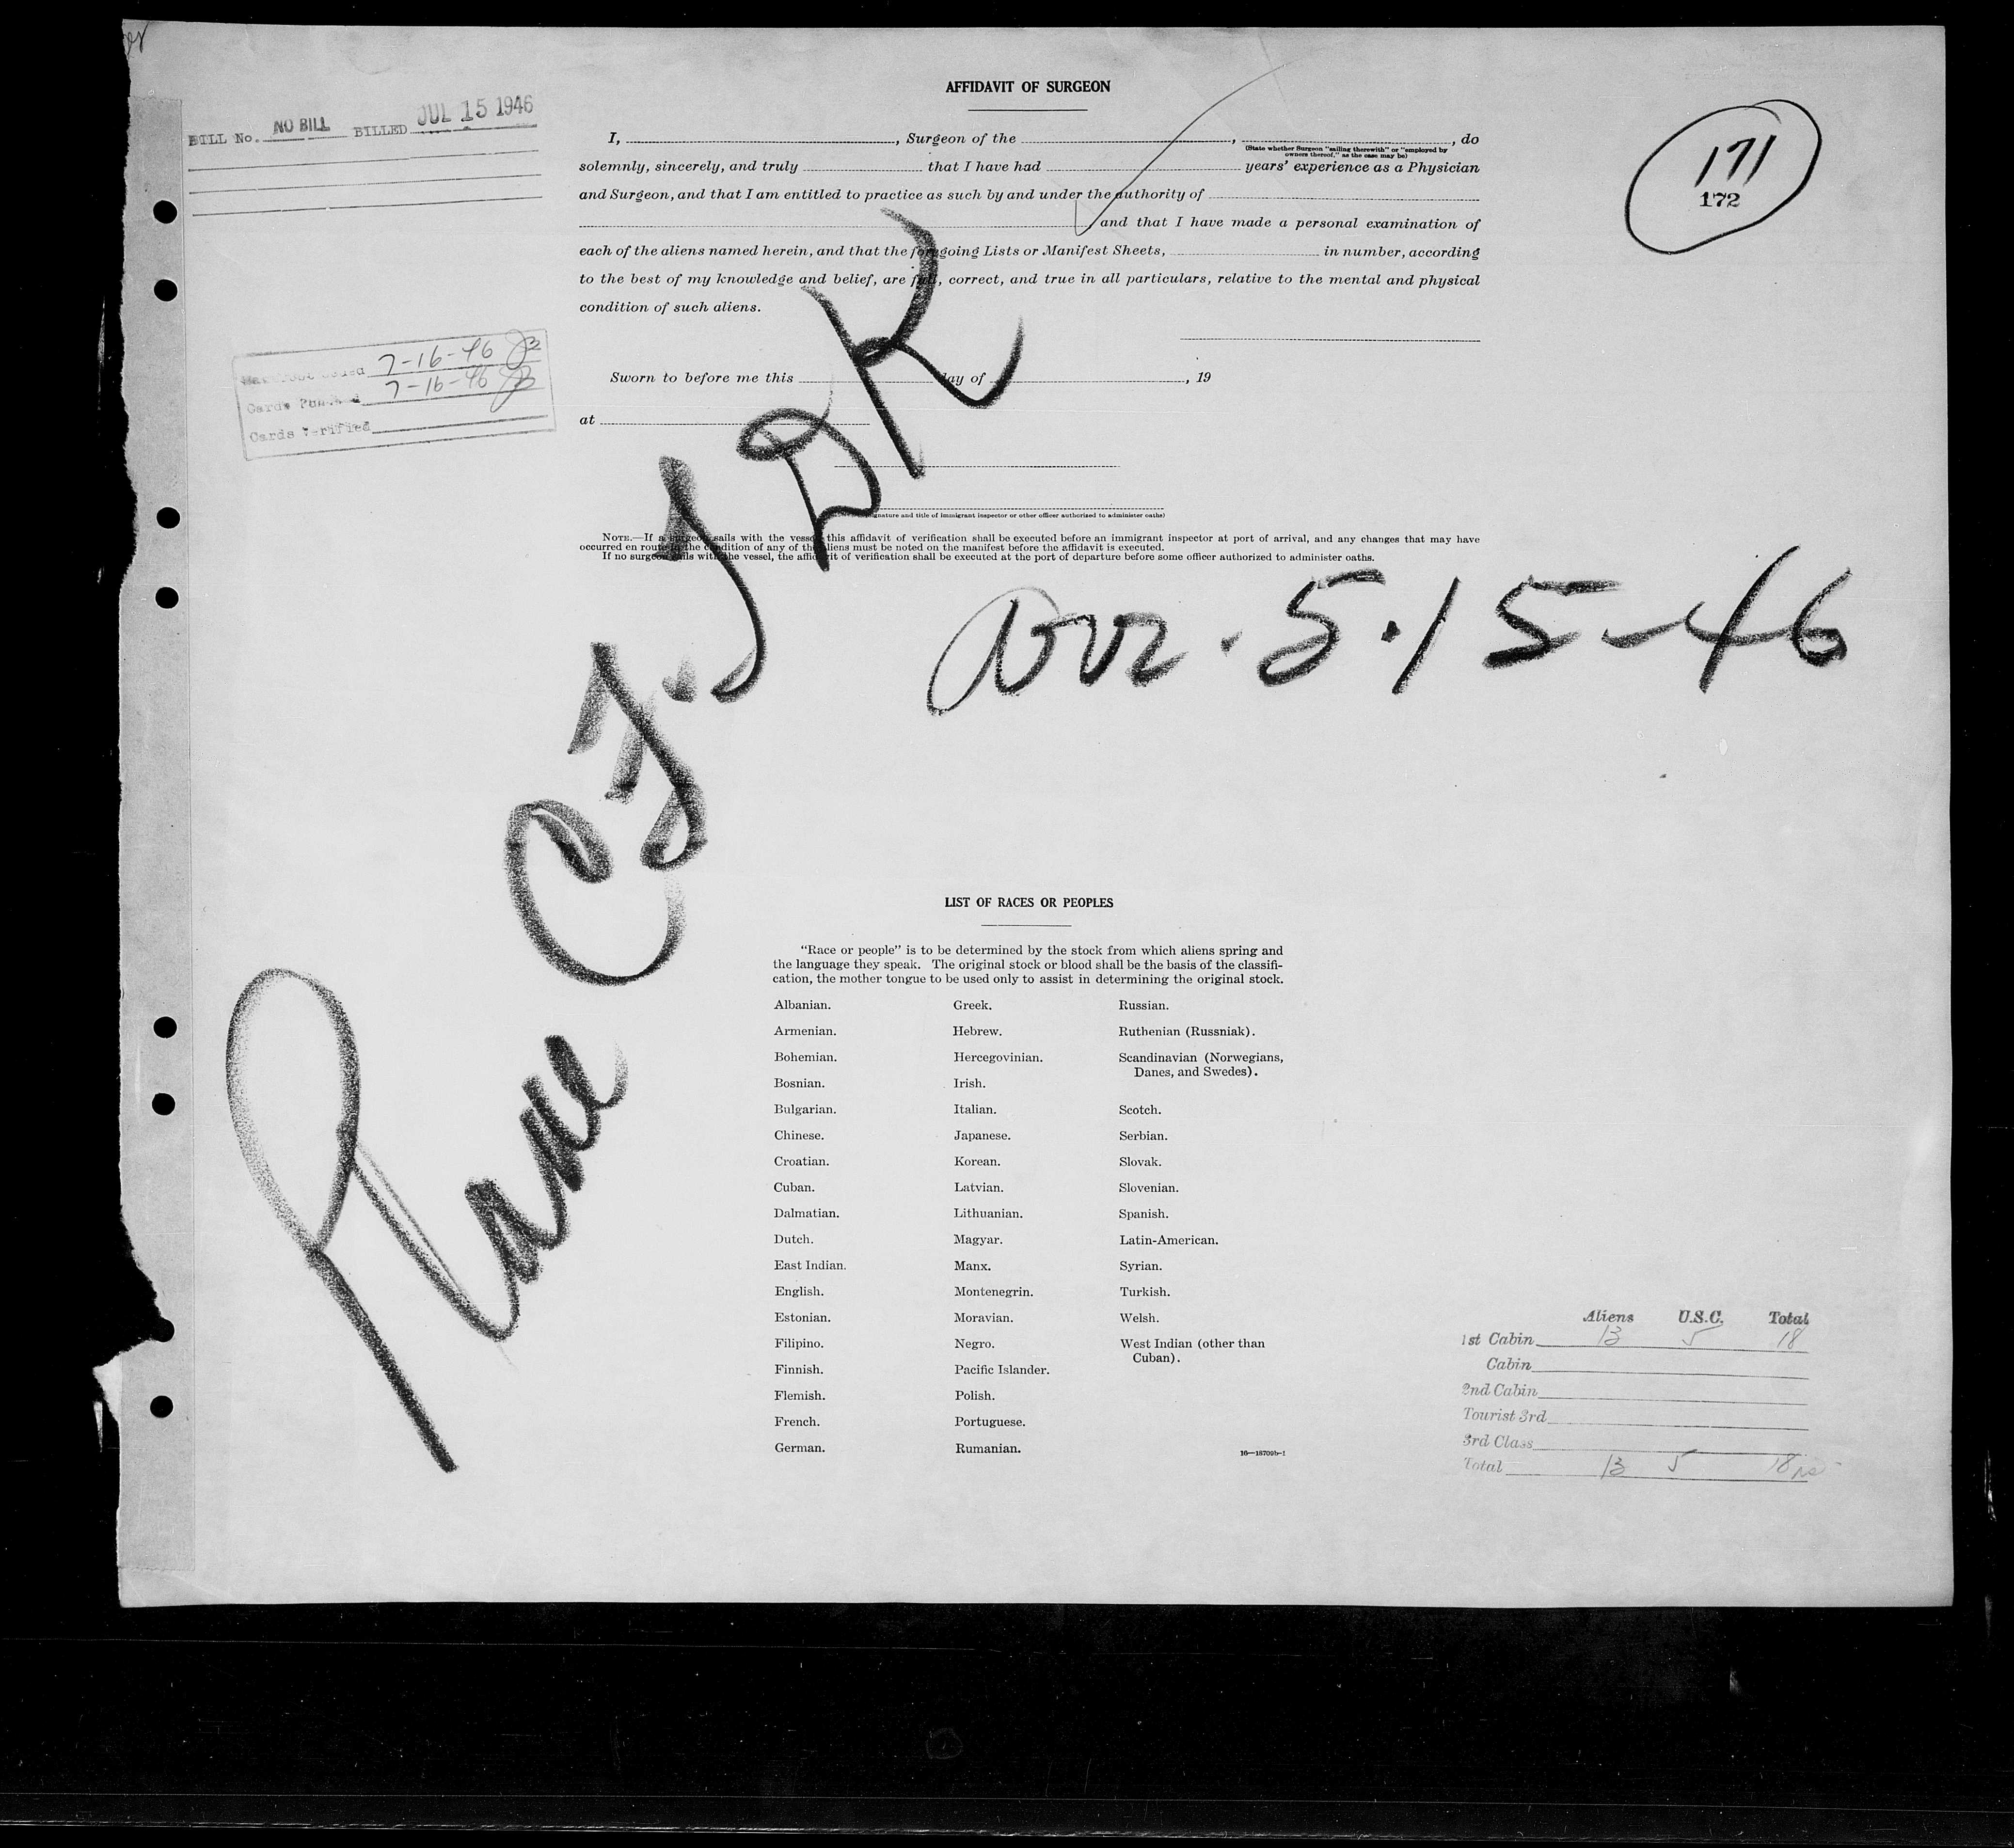 BILL No. NO BILL BILLED JUL 15 1946
171
172
AFFIDAVIT OF SURGEON
I, , Surgeon of the , , do
(State whether Surgeon "sailing therewith" or "employed by
owners thereof," as the case may be)
solemnly, sincerely, and truly that I have had years' experience as a Physician
and Surgeon, and that I am entitled to practice as such by and under the authority of
, and that I have made a personal examination of
each of the aliens named herein, and that the foregoing Lists or Manifest Sheets, in number, according
to the best of my knowledge and belief, are full, correct, and true in all particulars, relative to the mental and physical
condition of such aliens.
7-16-46
Cards Punched 7-16-46
Cards Verified
Sworn to before me this day of , 19
at
(Signature and title of immigrant inspector or other officer authorized to administer oaths)
NOTE.—If a surgeon sails with the vessel, this affidavit of verification shall be executed before an immigrant inspector at port of arrival, and any changes that may have
occurred en route in the condition of any of the aliens must be noted on the manifest before the affidavit is executed.
If no surgeon sails with the vessel, the affidavit of verification shall be executed at the port of departure before some officer authorized to administer oaths.
Plane
5.15-46
LIST OF RACES OR PEOPLES
"Race or people" is to be determined by the stock from which aliens spring and
the language they speak. The original stock or blood shall be the basis of the classifi-
cation, the mother tongue to be used only to assist in determining the original stock.
Albanian. Greek. Russian.
Armenian. Hebrew. Ruthenian (Russniak).
Bohemian. Hercegovinian. Scandinavian (Norwegians,
Danes, and Swedes).
Bosnian. Irish.
Bulgarian. Italian. Scotch.
Chinese. Japanese. Serbian.
Croatian. Korean. Slovak.
Cuban. Latvian. Slovenian.
Dalmatian. Lithuanian. Spanish.
Dutch. Magyar. Latin-American.
East Indian. Manx. Syrian.
English. Montenegrin. Turkish.
Estonian. Moravian. Welsh.
Filipino. Negro. West Indian (other than
Cuban).
Finnish. Pacific Islander.
Flemish. Polish.
French. Portuguese.
German. Rumanian.
16—18709b-1
Aliens U.S.C. Total
1st Cabin 13 5 18
Cabin
2nd Cabin
Tourist 3rd
3rd Class
Total 13 5 18